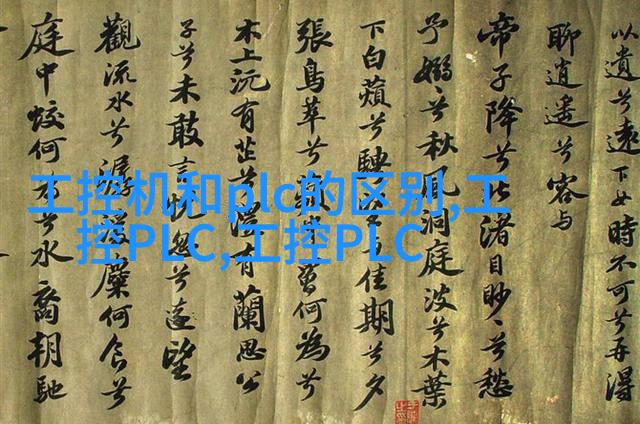 工控机和plc的区别,工
控PLC,工控PLC
以遺兮遠下女時不可兮再得
聊逍遙兮容与
帝子降兮北渚目眇〻兮愁
予嫋〻兮秋風洞庭波兮木葉
下白蘋兮騁望与佳期兮夕
張鳥萃兮蘋中罾何為兮
木上沅有芷兮澧有蘭思公
子兮未敢言怳忽兮遠望
觀流水兮潺湲麋何食兮
庭中蛟何為兮水裔朝馳